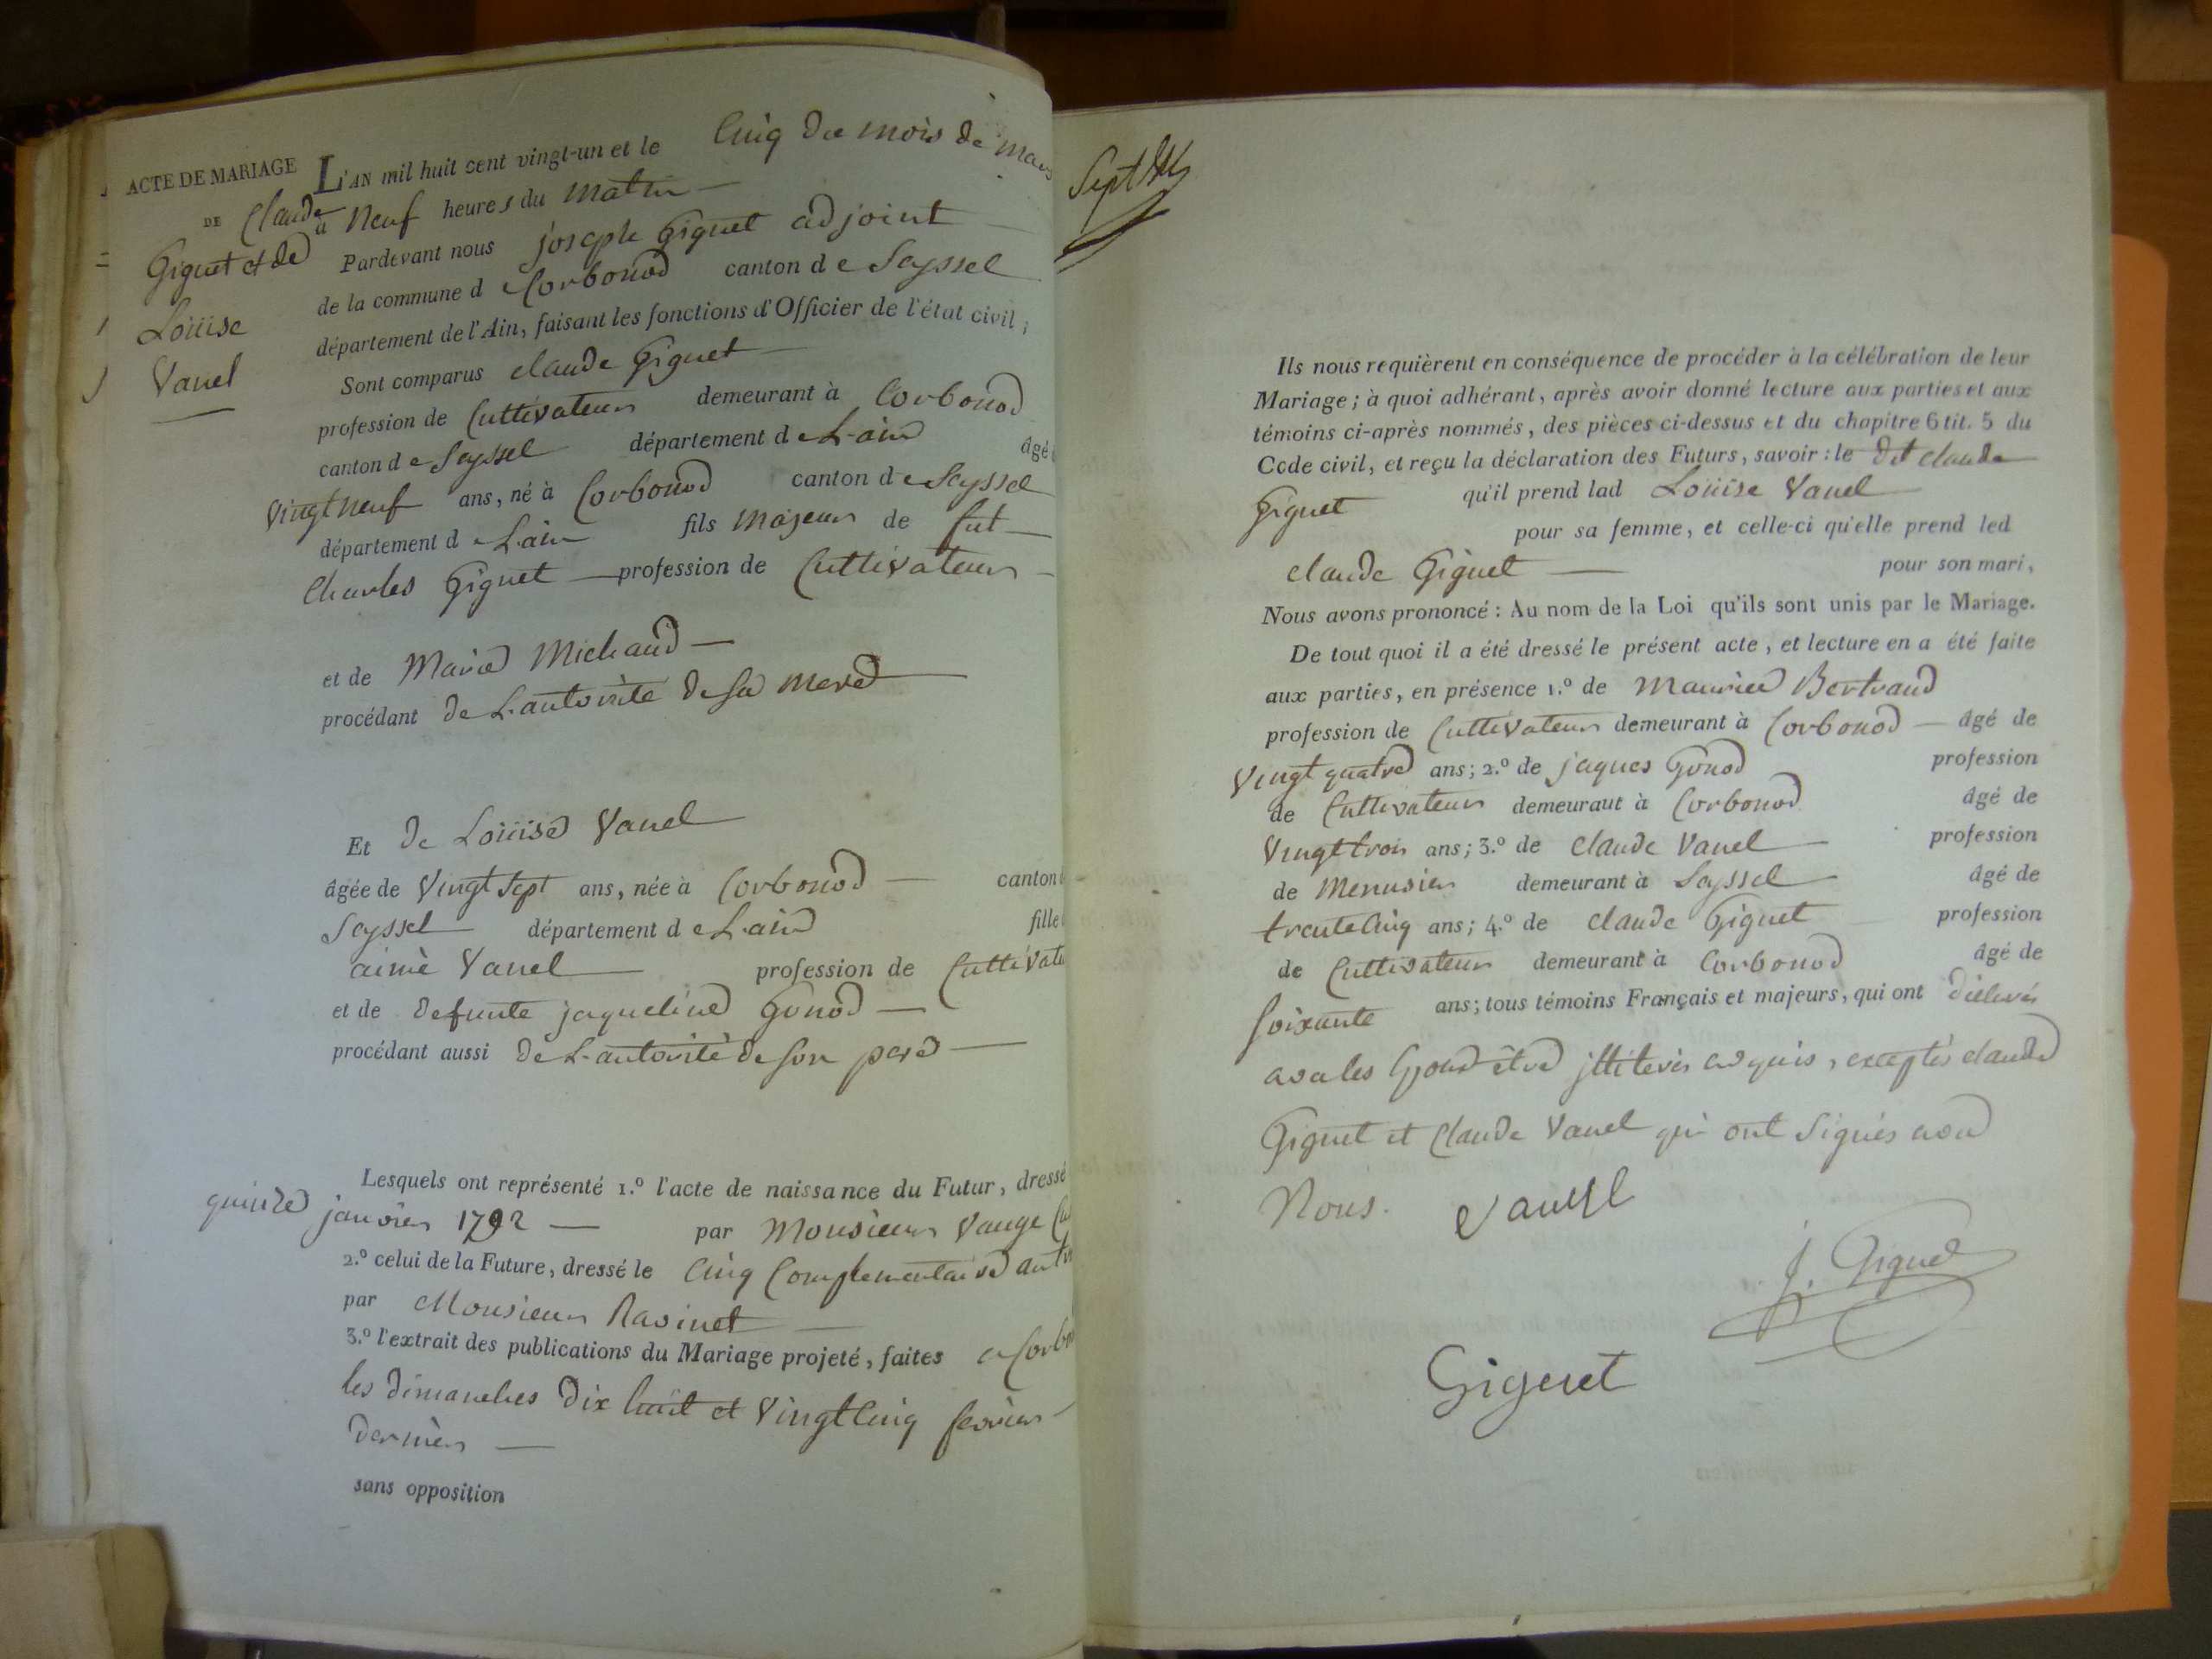 ACTE DE MARIAGE
DE Claude
Giguet et de
Louise
Vanel
L'AN mil huit cent vingt-un et le Cinq du mois de mars
à Neuf heures du matin
Pardevant nous joseph Giguet adjoint
de la commune d e Corbonod canton d e Seyssel
département de l'Ain, faisant les fonctions d'Officier de l'état civil;
Sont comparus claude Giguet
profession de Cultivateur demeurant à Corbonod
canton d e Seyssel département d e L'ain âgé
Vingt neuf ans, né à Corbonod canton d e Seyssel
département d e L'ain fils majeur de fut
Charles Giguet profession de Cultivateur
et de Marie Michaud
procédant de L'autorité de sa mere
Et de Louise Vanel
âgée de Vingt Sept ans, née à Corbonod canton
Seyssel département d e L'ain fille
aimé Vanel profession de Cultivate
et de defunte jaqueline Gonod
procédant aussi de L'autorité de son pere
Lesquels ont représenté 1.º l'acte de naissance du Futur, dressé
quinze janvier 1792 par Monsieur Vauge
2.º celui de la Future, dressé le Cinq Complementaire an
par Monsieur Ravinet
3.º l'extrait des publications du Mariage projeté, faites a Corbo
les dimanches dix huit et Vingt Cinq fevrier
dernier
sans opposition
Sept
Ils nous requièrent en conséquence de procéder à la célébration de leur
Mariage; à quoi adhérant, après avoir donné lecture aux parties et aux
témoins ci-après nommés, des pièces ci-dessus et du chapitre 6 tit. 5 du
Code civil, et reçu la déclaration des Futurs, savoir: le dit claude
Giguet qu'il prend lad Louise Vanel
pour sa femme, et celle-ci qu'elle prend led
claude Giguet pour son mari,
Nous avons prononcé: Au nom de la Loi qu'ils sont unis par le Mariage.
De tout quoi il a été dressé le présent acte, et lecture en a été faite
aux parties, en présence 1.º de Maurice Bertrand
profession de Cultivateur demeurant à Corbonod âgé de
Vingt quatre ans; 2.º de jaques Gonod profession
de Cultivateur demeuraut à Corbonod âgé de
Vingt trois ans; 3.º de claude Vanel profession
de Menusier demeurant à Seyssel âgé de
trente Cinq ans; 4.º de claude Giguet profession
de Cultivateur demeurant à Corbonod âgé de
soixante ans; tous témoins Français et majeurs, qui ont
être exceptés claude
Giguet et Claude Vanel qui ont signés
Nous.
Vanel
J. Giguet
Giguet